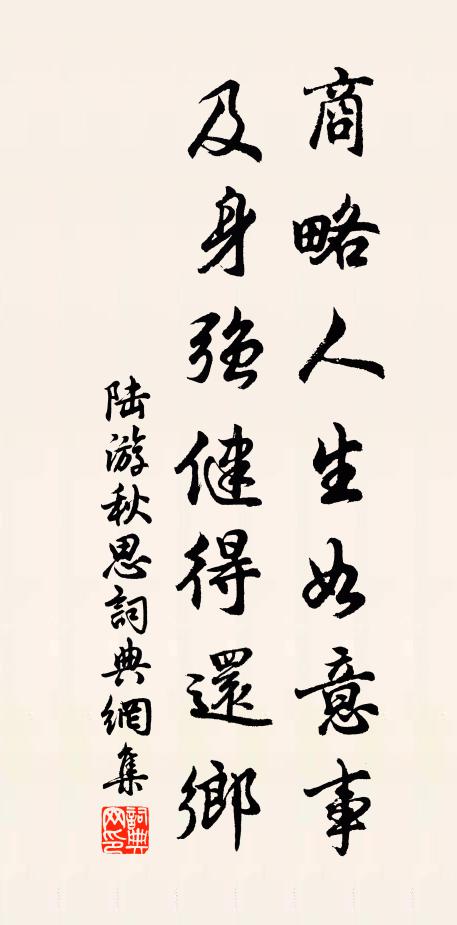 商略人生如意事
及身強健得還鄉
陆游秋思詞典網集
詞典
网印